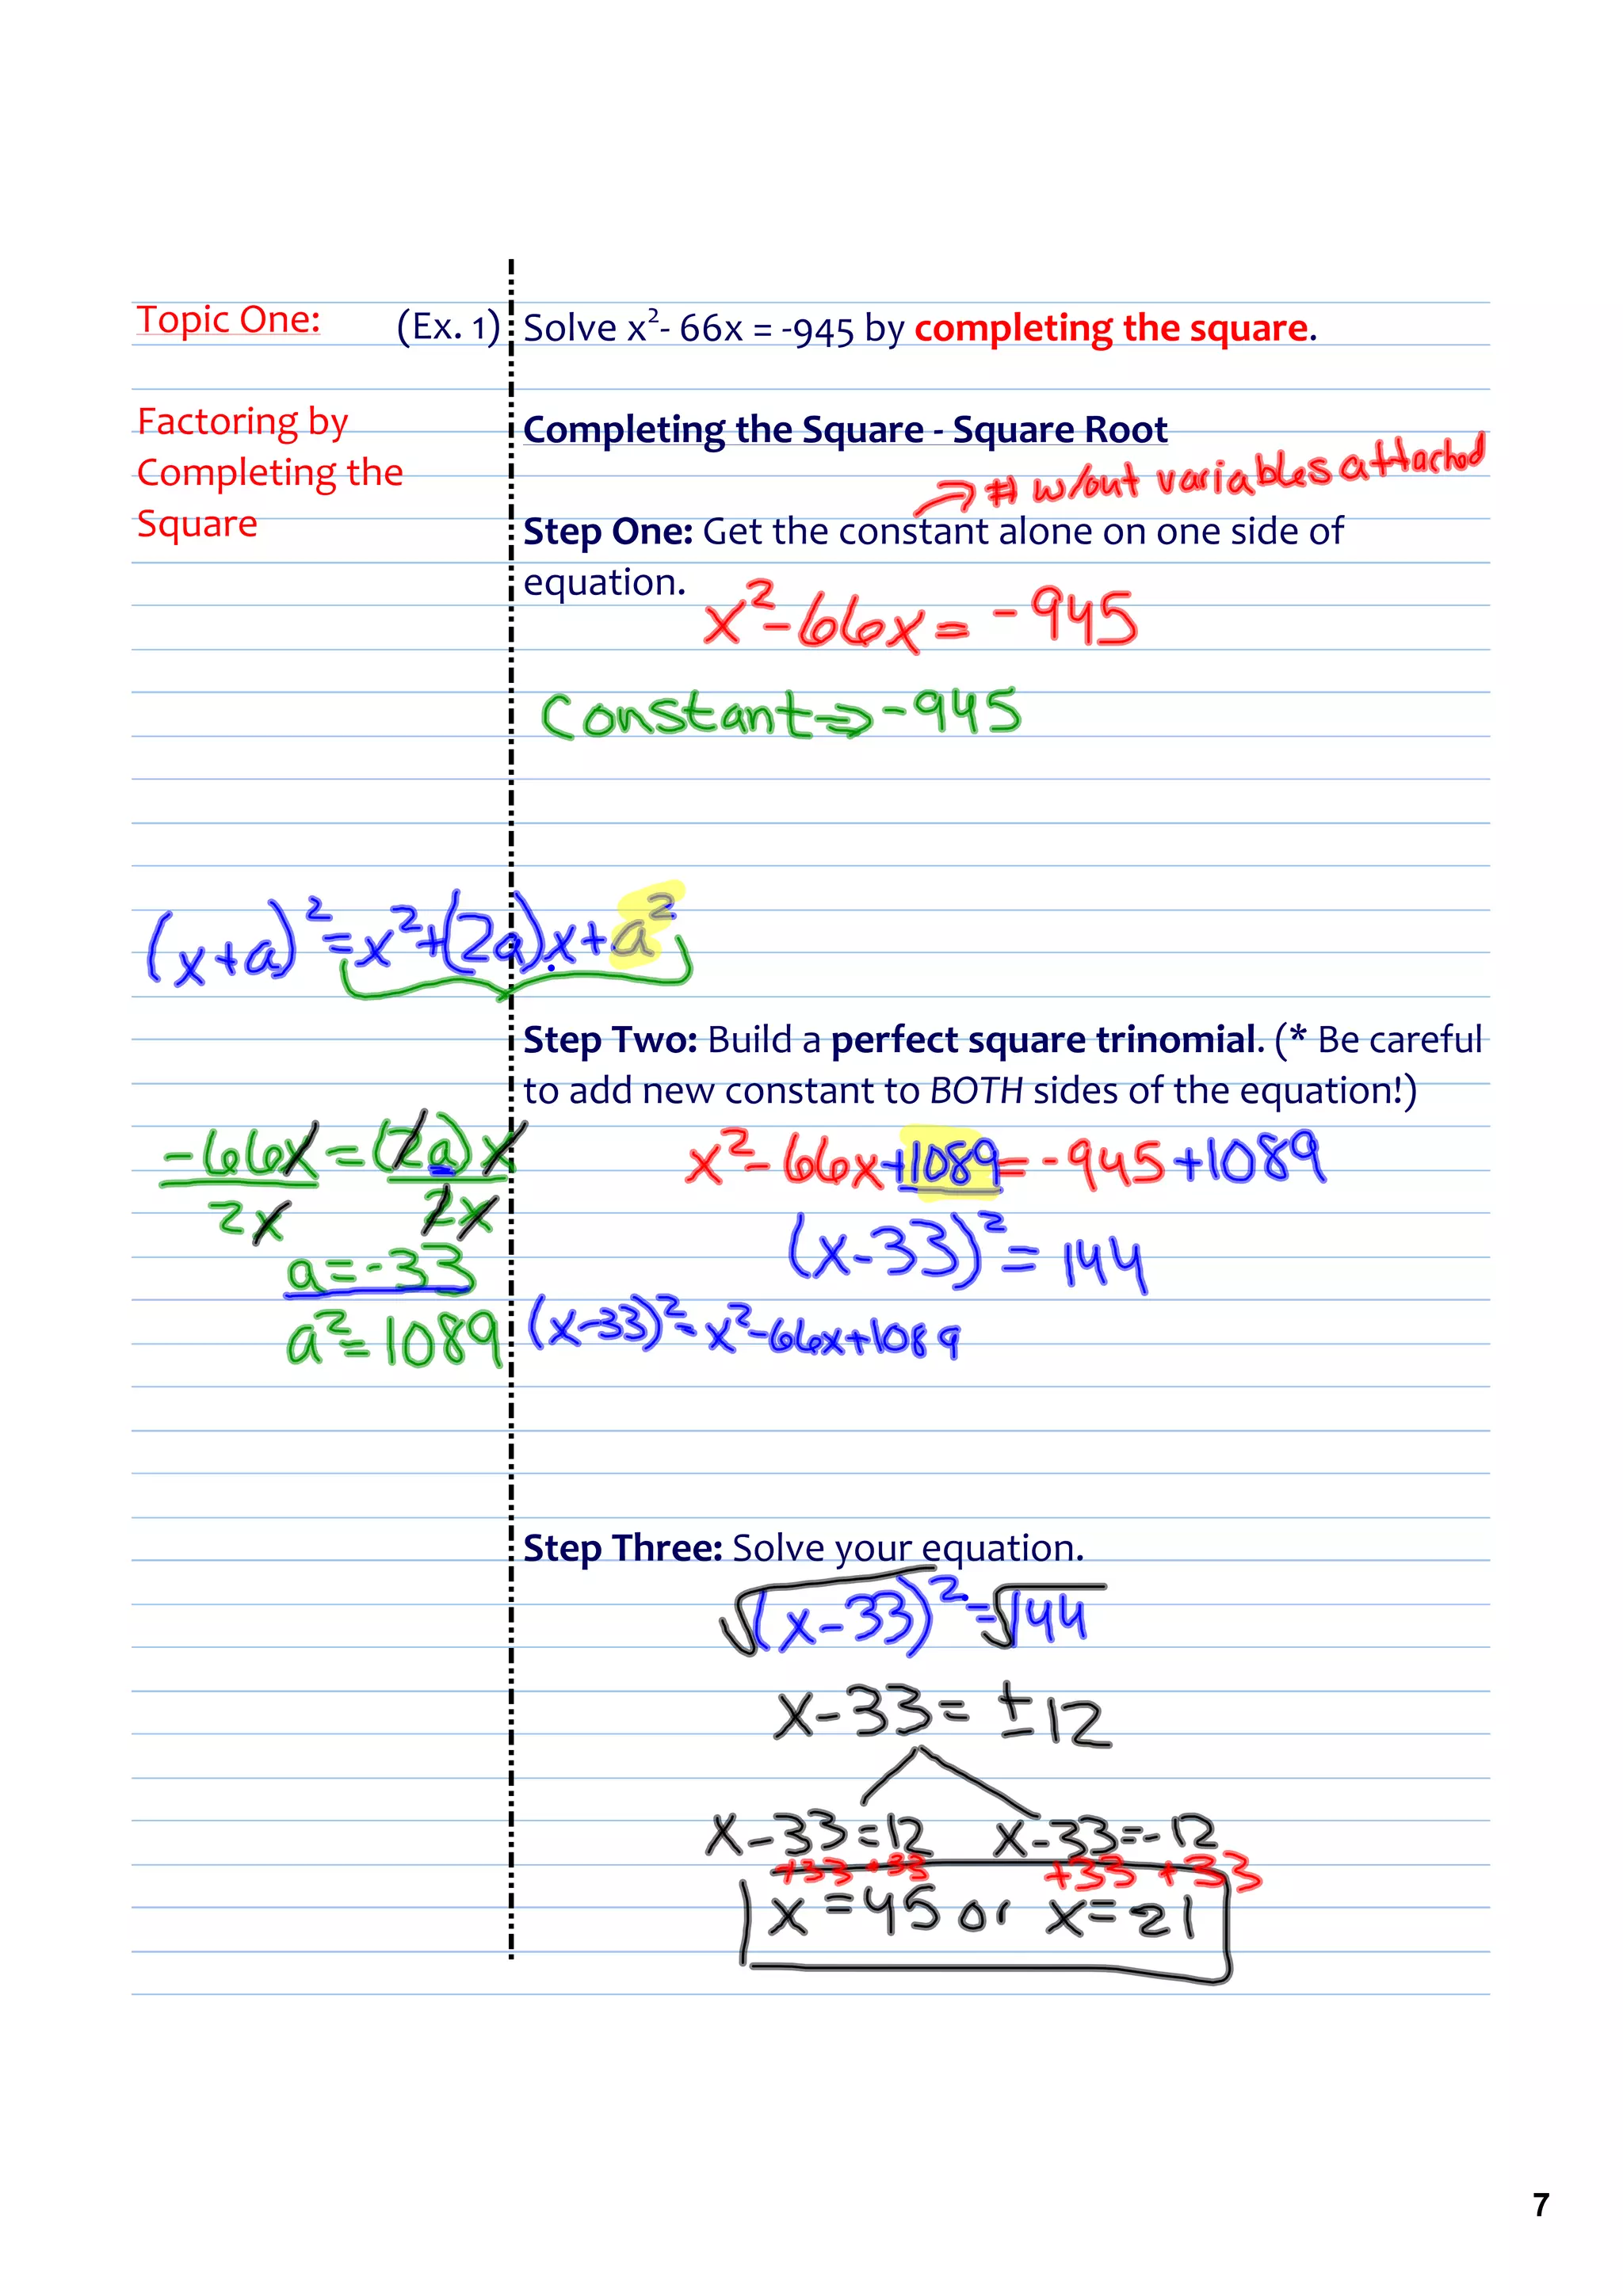 Topic One:
(Ex. 1) Solve x²- 66x = -945 by completing the square.
Factoring by
Completing the
Square
Completing the Square - Square Root
→ # w/out variables attached
Step One: Get the constant alone on one side of
equation.
x²-66x = -945
Constant ⇒ -945
(x+a)² = x²+(2a)x+a²
Step Two: Build a perfect square trinomial. (* Be careful
to add new constant to BOTH sides of the equation!)
-66x = (2a)x
2x 2x
a = -33
a² = 1089
x² - 66x +1089 = -945 +1089
(x-33)² = 144
(x-33)² = x²-66x+1089
Step Three: Solve your equation.
√(x-33)² = √144
x-33 = ±12
x-33=12 x-33=-12
+33 +33 +33 +33
x = 45 or x = 21
7